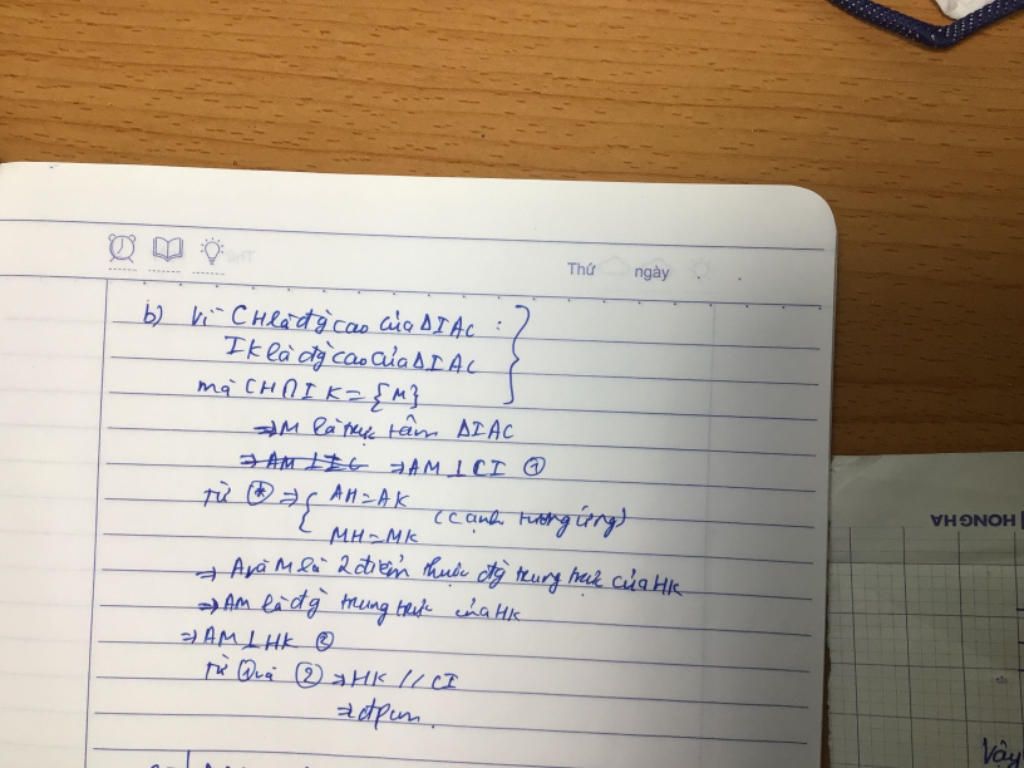 Thứ ngày
b) Vì CH là đg̀ cao của ΔIAC :
IK là đg̀ cao của ΔIAC
mà CH∩IK = {M}
⇒ M là trực tâm ΔIAC
⇒ AM ⊥ IC ⇒ AM ⊥ CI ①
Từ (*) ⇒ { AH = AK
MH = MK (cạnh tương ứng)
⇒ A và M là 2 điểm thuộc đg̀ trung trực của HK
⇒ AM là đg̀ trung trực của HK
⇒ AM ⊥ HK ②
Từ ① và ② ⇒ HK // CI
⇒ đpcm.
HONG HA
Vậy